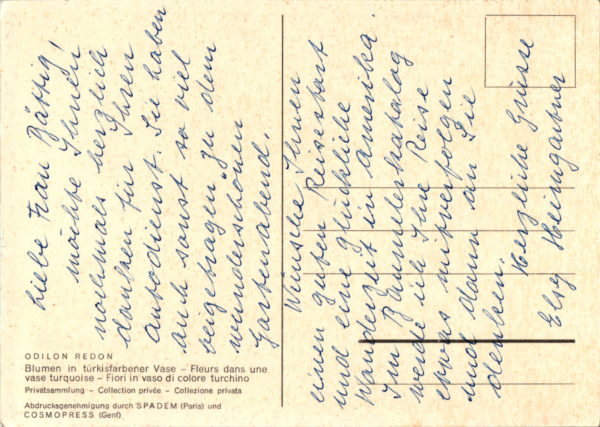 Liebe Frau Bättig!
möchte Ihnen
nochmals herzlich
danken für Ihren
Autodienst. Sie haben
auch sonst so viel
beigetragen zu dem
wunderschönen
Gartenabend.
Wünsche Ihnen
einen guten Reisestart
und eine glückliche
Wanderzeit in Amerika.
Im Baumlerkatalog
werde ich Ihre Reise
etwas mitverfolgen
und dann an Sie
denken.
Herzliche Grüsse
Elsy Heimgartner
ODILON REDON
Blumen in türkisfarbener Vase – Fleurs dans une
vase turquoise – Fiori in vaso di colore turchino
Privatsammlung – Collection privée – Collezione privata
Abdrucksgenehmigung durch SPADEM (Paris) und
COSMOPRESS (Genf)